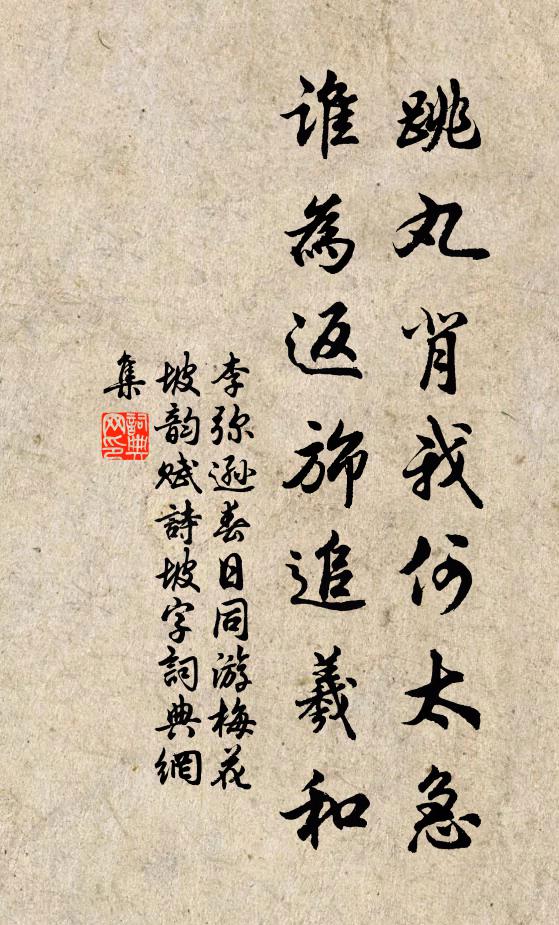 跳丸背我何太急
誰為返旆追羲和
李弥遜春日同游梅花
坡韵賦詩坡字詞典網
集
詞典網印